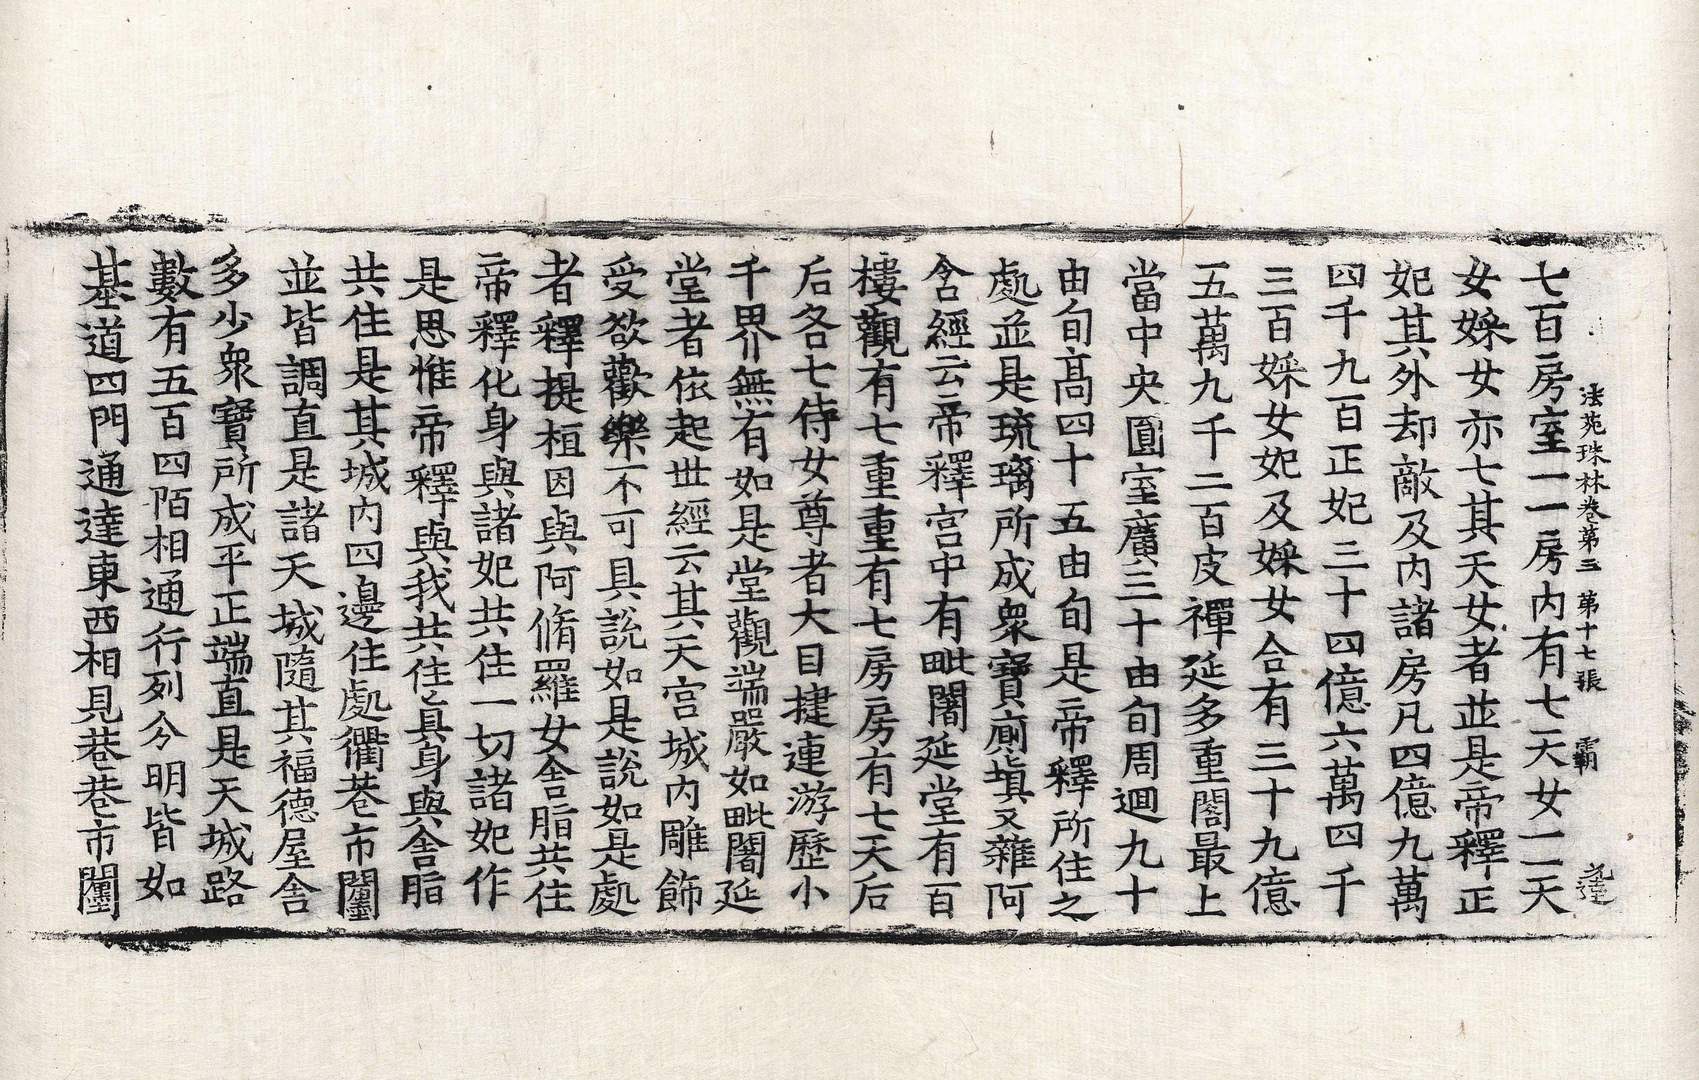 法苑珠林卷第三 第十七張 霸
七百房室一一房內有七天女一一天
女婇女亦七其天女者並是帝釋正
妃其外却敵及內諸房凡四億九萬
四千九百正妃三十四億六萬四千
三百婇女妃及婇女合有三十九億
五萬九千二百皮禪延多重閣最上
當中央圓室廣三十由旬周迴九十
由旬高四十五由旬是帝釋所住之
處並是琉璃所成衆寶廁填又雜阿
含經云帝釋宮中有毗闍延堂有百
樓觀有七重重有七房房有七天后
后各七侍女尊者大目揵連游歷小
千界無有如是堂觀端嚴如毗闍延
堂者依起世經云其天宮城內雕飾
受欲歡樂不可具說如是說如是處
者釋提桓因與阿脩羅女舍脂共住
帝釋化身與諸妃共住一切諸妃作
是思惟帝釋與我共住其身與舍脂
共住是其城內四邊住處衢巷市鄽
並皆調直是諸天城隨其福德屋舍
多少衆寶所成平正端直是天城路
數有五百四陌相通行列分明皆如
基道四門通達東西相見巷巷市鄽